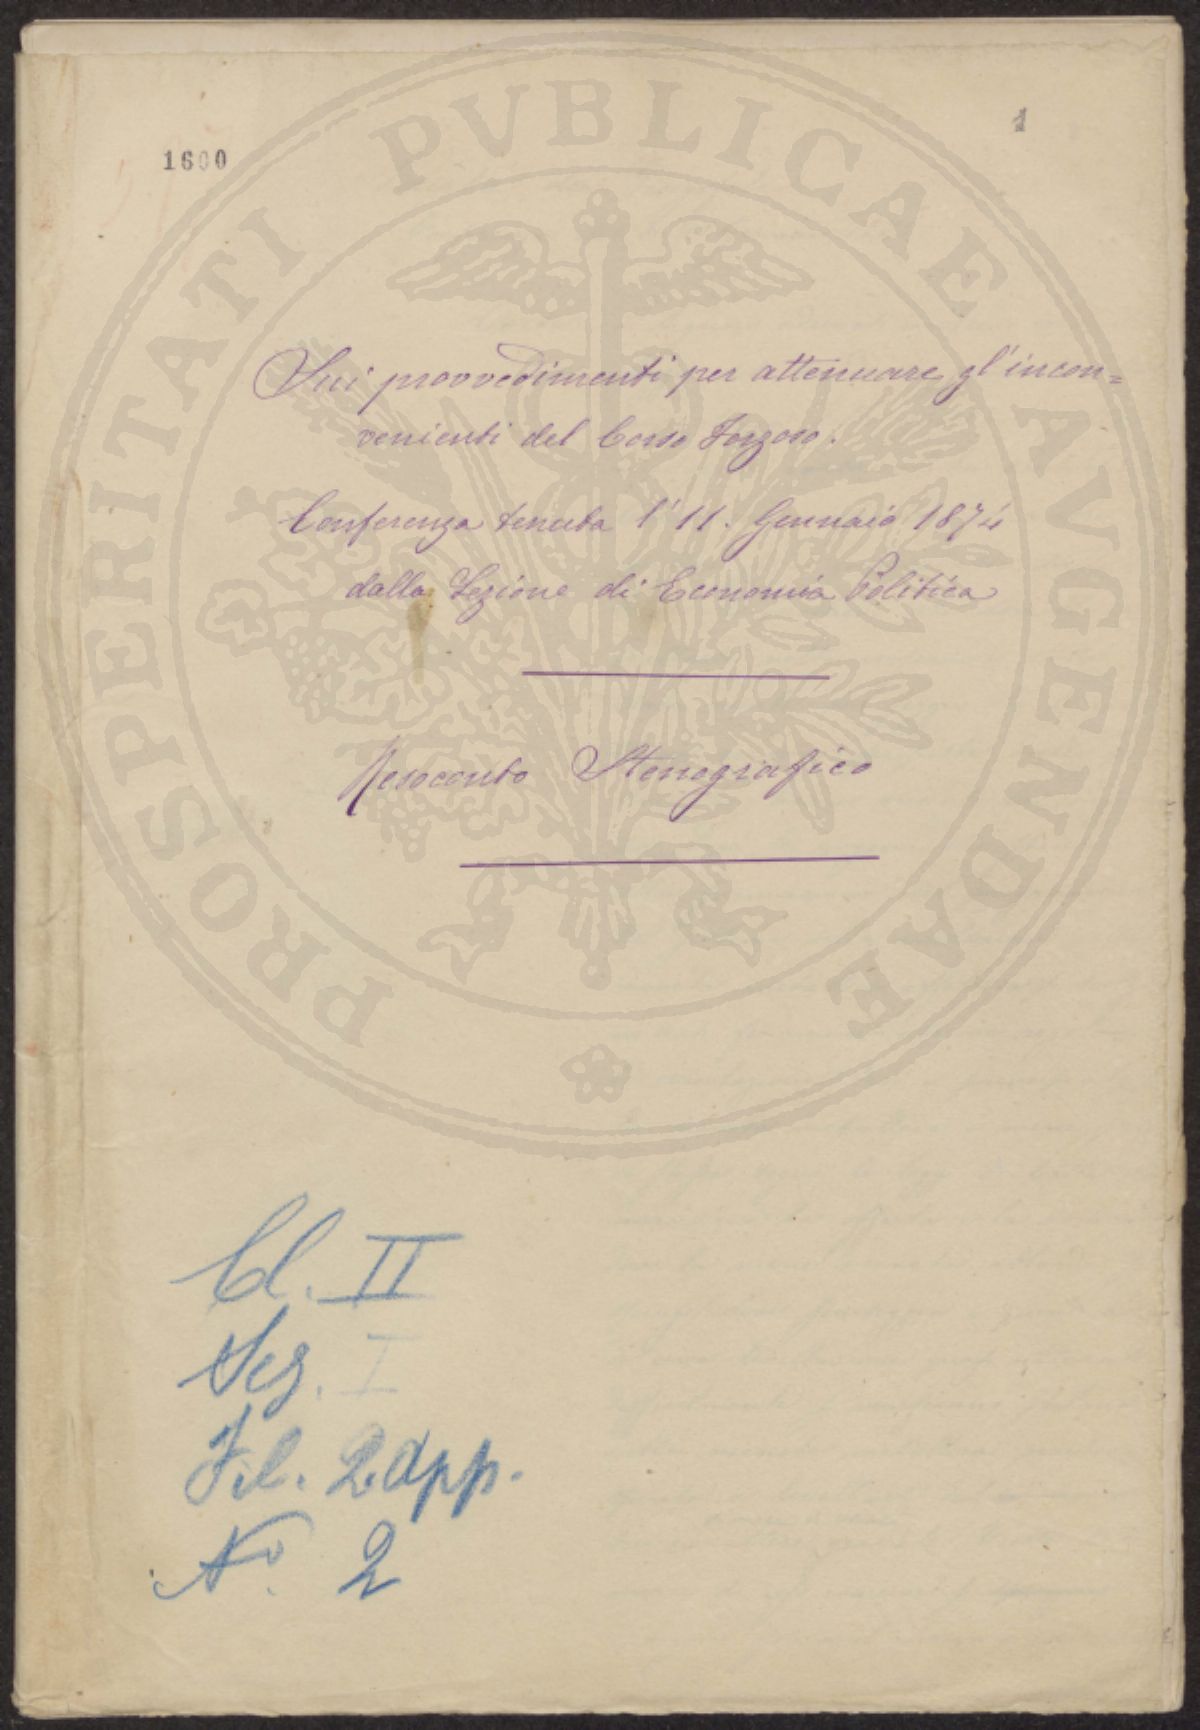 1600
1
Sui provvedimenti per attenuare gl'incon=
venienti del Corso Forzoso.
Conferenza tenuta l'11. Gennaio 1874
dalla Sezione di Economia Politica
Resoconto Stenografico
Cl. II
Sez. I
Fil. 2 app.
N.º 2
PROSPERITATI PVBLICAE AVGENDAE